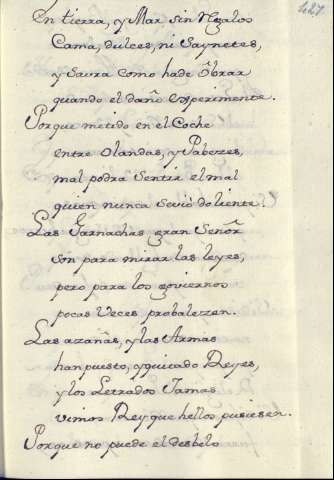 427
En tierra, y Mar sin Regalos
Cama, dulces, ni Saynetes,
y Savra como hade ôbrar
quando el daño experimente.
Porque metido en el Coche
entre Olandas, y Pabezes,
mal podra Sentir el mal
quien nunca Seviò doliente.
Las Garnachas gran Señor
Son para mirar las leyes,
pero para los goviernos
pocas Veces probalezen.
Las azañas, y las Armas
han puesto, y quitado Reyes,
y los Letrados Jamas
vimos Rey que hellos pusiesen.
Porque no puede el desbelo